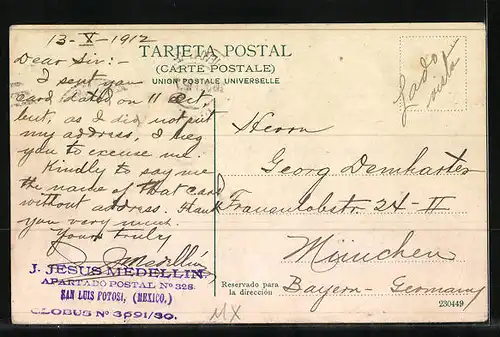 13-X-1912
TARJETA POSTAL
(CARTE POSTALE)
UNION POSTALE UNIVERSELLE
Lado
vista
Dear Sir:-
I sent you
card dated on 11 Oct,
but, as I did not put
my address, I beg
you to excuse me.
Kindly to say me
the name of that card
without address. Thank
you very much.
Yours truly
J. Medellin
J. JESUS MEDELLIN.
APARTADO POSTAL Nº 328.
SAN LUIS POTOSI, (MEXICO.)
GLOBUS Nº 3691/30.
Herrn
Georg Demharter
Frauenlobstr. 24-II
München
Bayern - Germany
Reservado para
la dirección
230449
MX